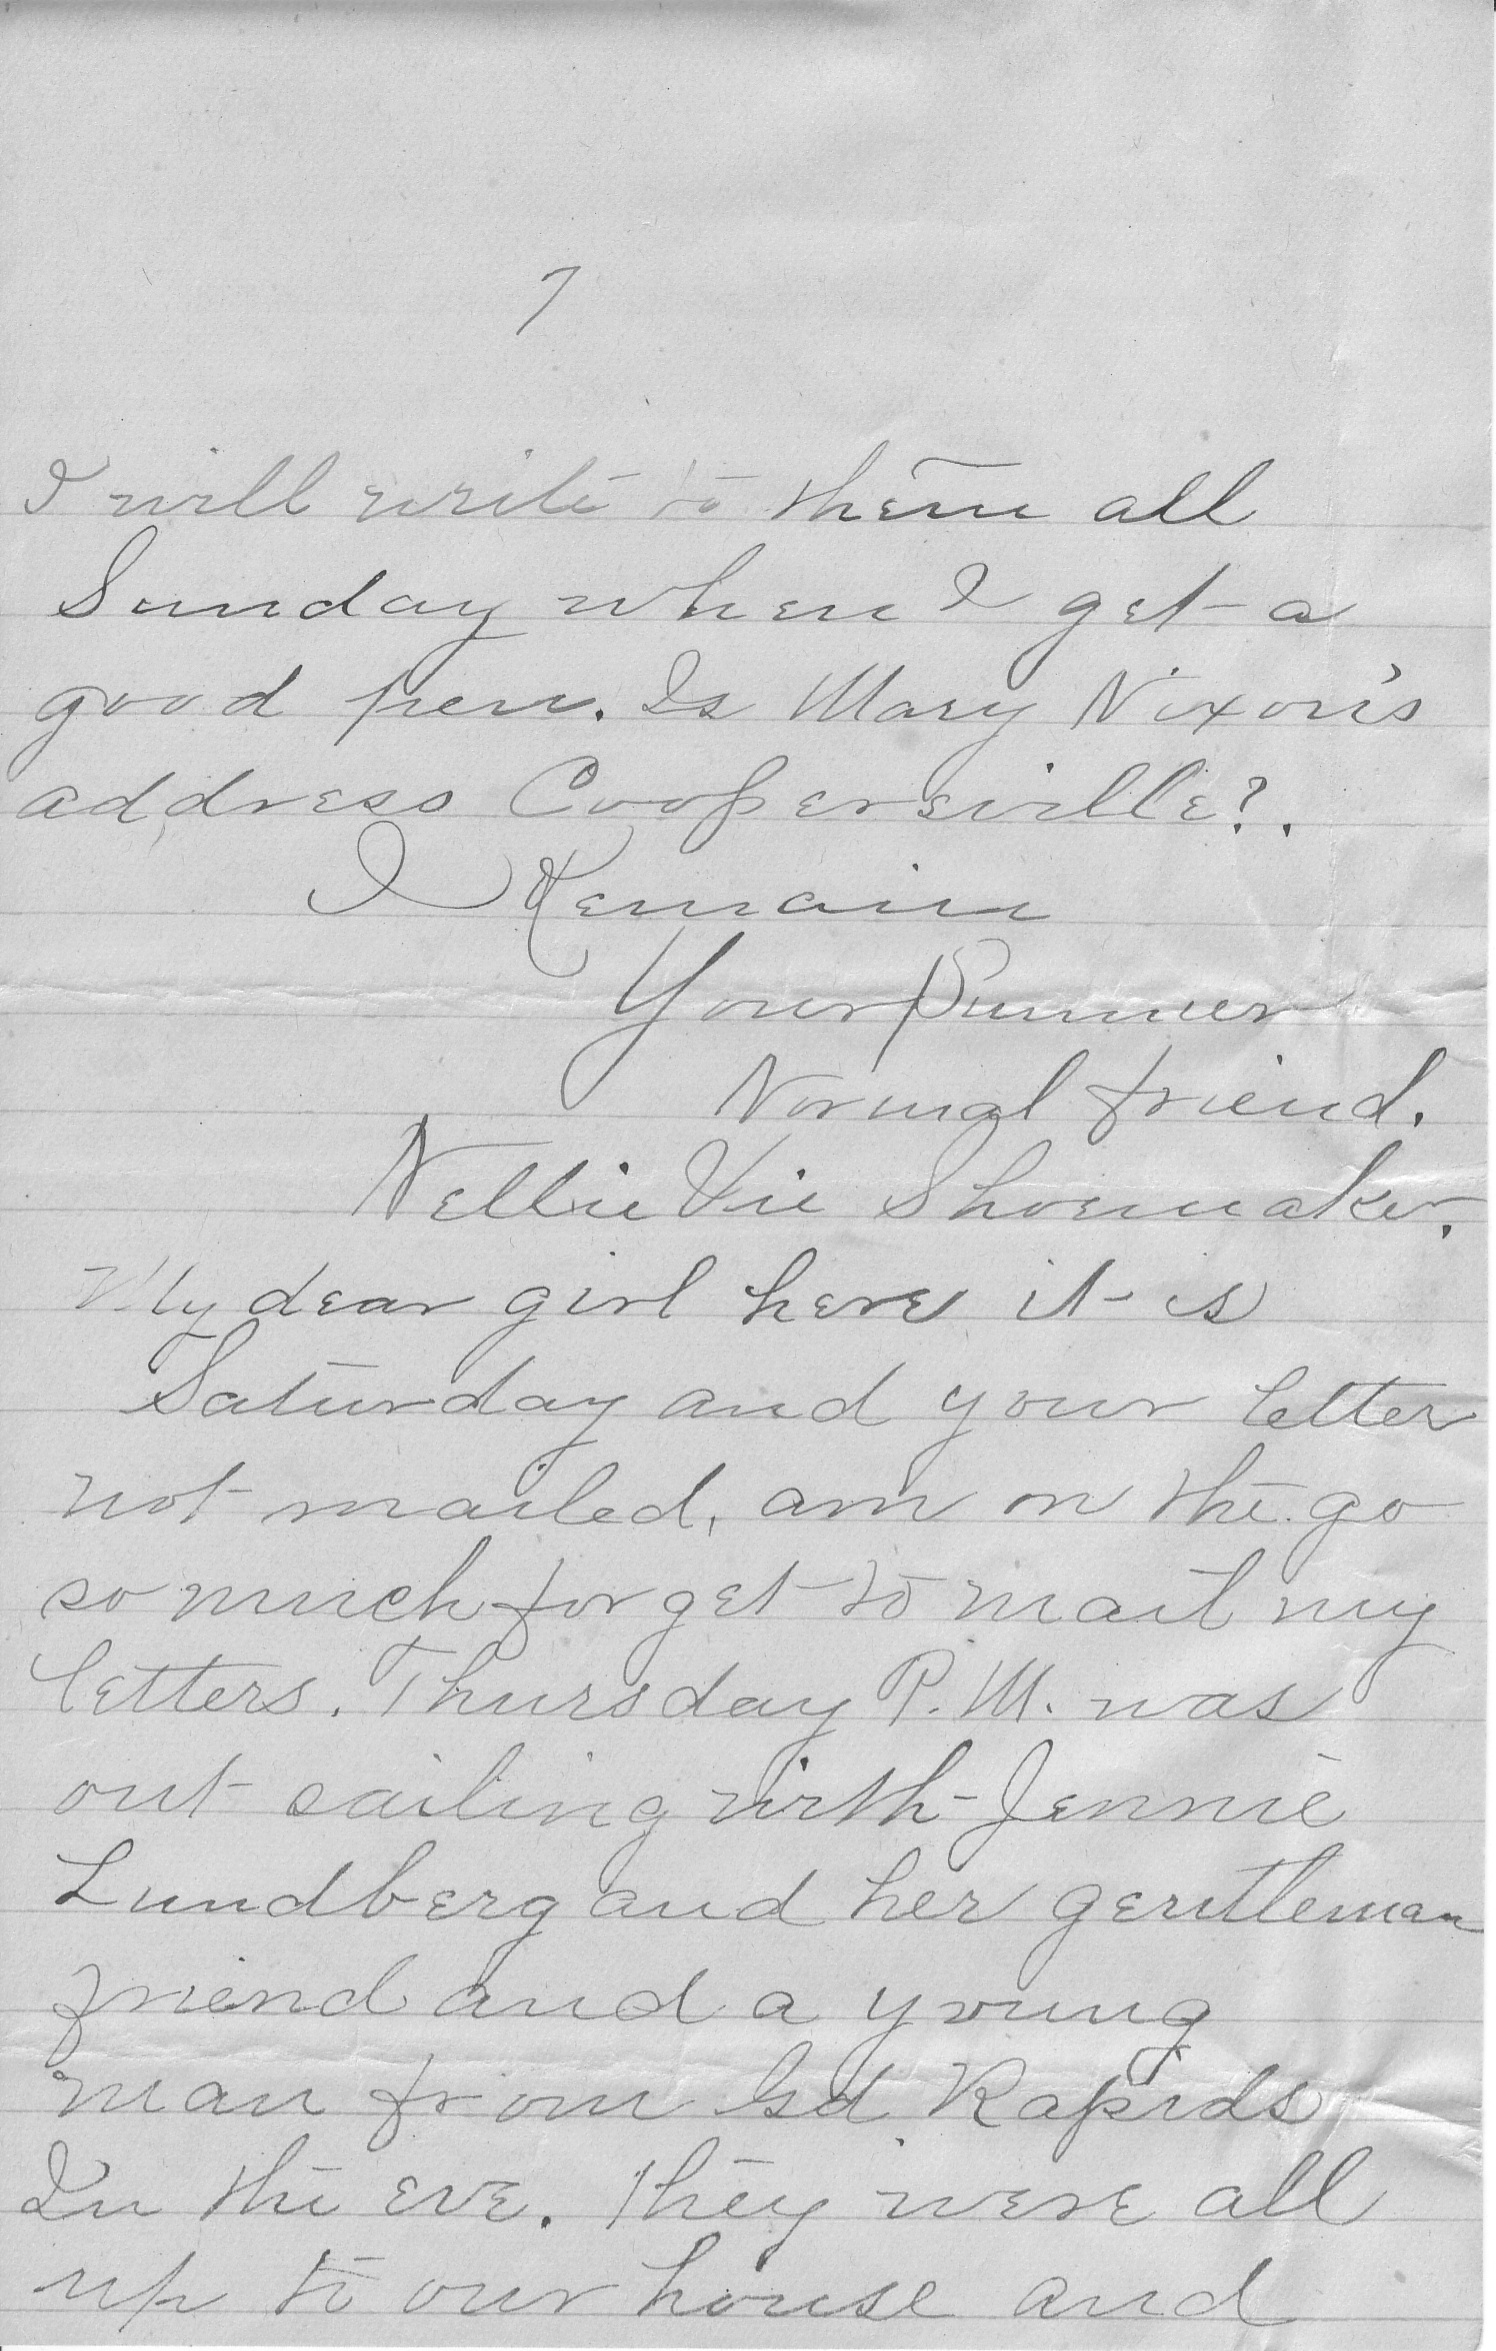 7
I will write to them all
Sunday when I get a
good pen. Is Mary Nixon's
address Coopersville?.
I Remain
Your Summer
Normal friend.
Nellie Vie Shoemaker.
My dear girl here it is
Saturday and your letter
not mailed, am on the go
so much forget to mail my
letters. Thursday P.M. was
out sailing with Jennie
Lundberg and her gentleman
friend and a young
man from Gd Rapids
In the eve. they were all
up to our house and